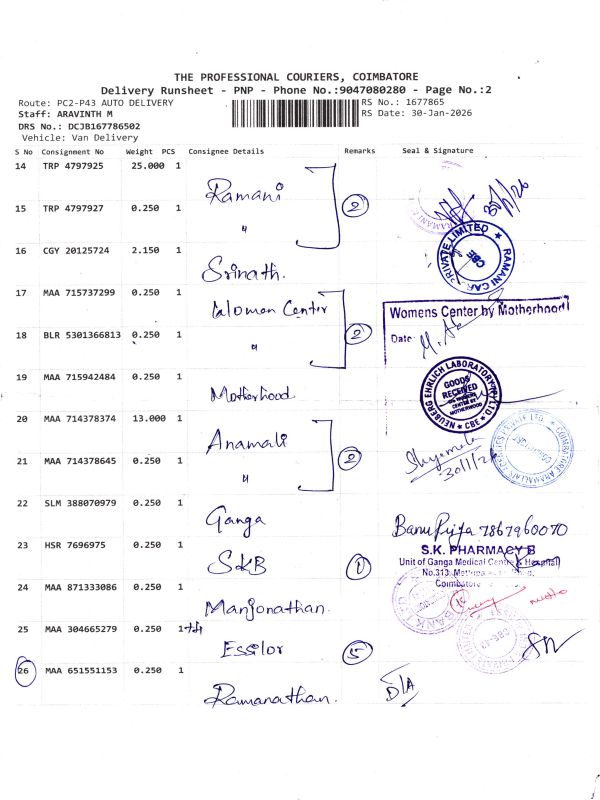 THE PROFESSIONAL COURIERS, COIMBATORE
Delivery Runsheet - PNP - Phone No.:9047080280 - Page No.:2
Route: PC2-P43 AUTO DELIVERY
RS No.: 1677865
Staff: ARAVINTH M
RS Date: 30-Jan-2026
DRS No.: DCJB167786502
Vehicle: Van Delivery
S No Consignment No Weight PCS Consignee Details Remarks Seal & Signature
14 TRP 4797925 25.000 1
Ramani
2
30/1/26
15 TRP 4797927 0.250 1
"
16 CGY 20125724 2.150 1
PRIVATE LIMITED ★ RAMANI CAR
CBE
Srinath.
17 MAA 715737299 0.250 1
Center
2
Womens Center by Motherhood
Date
18 BLR 5301366813 0.250 1
"
19 MAA 715942484 0.250 1
Motherhood
NEUBERG EHRLICH LABORATORY (P) LTD
GOODS
RECEIVED
MOTHERHOOD
★ CBE ★
20 MAA 714378374 13.000 1
Anamali
2
Shyamala
30/1/26
21 MAA 714378645 0.250 1
"
22 SLM 388070979 0.250 1
Ganga
Banu Priya 7867960070
23 HSR 7696975 0.250 1
SKB
1
S.K. PHARMACY B
Unit of Ganga Medical Centre & Hospital
No.313,
Coimbatore
24 MAA 871333086 0.250 1
Manjonathan.
25 MAA 304665279 0.250 1+4
Essilor
5
26 MAA 651551153 0.250 1
Ramanathan.
D/A